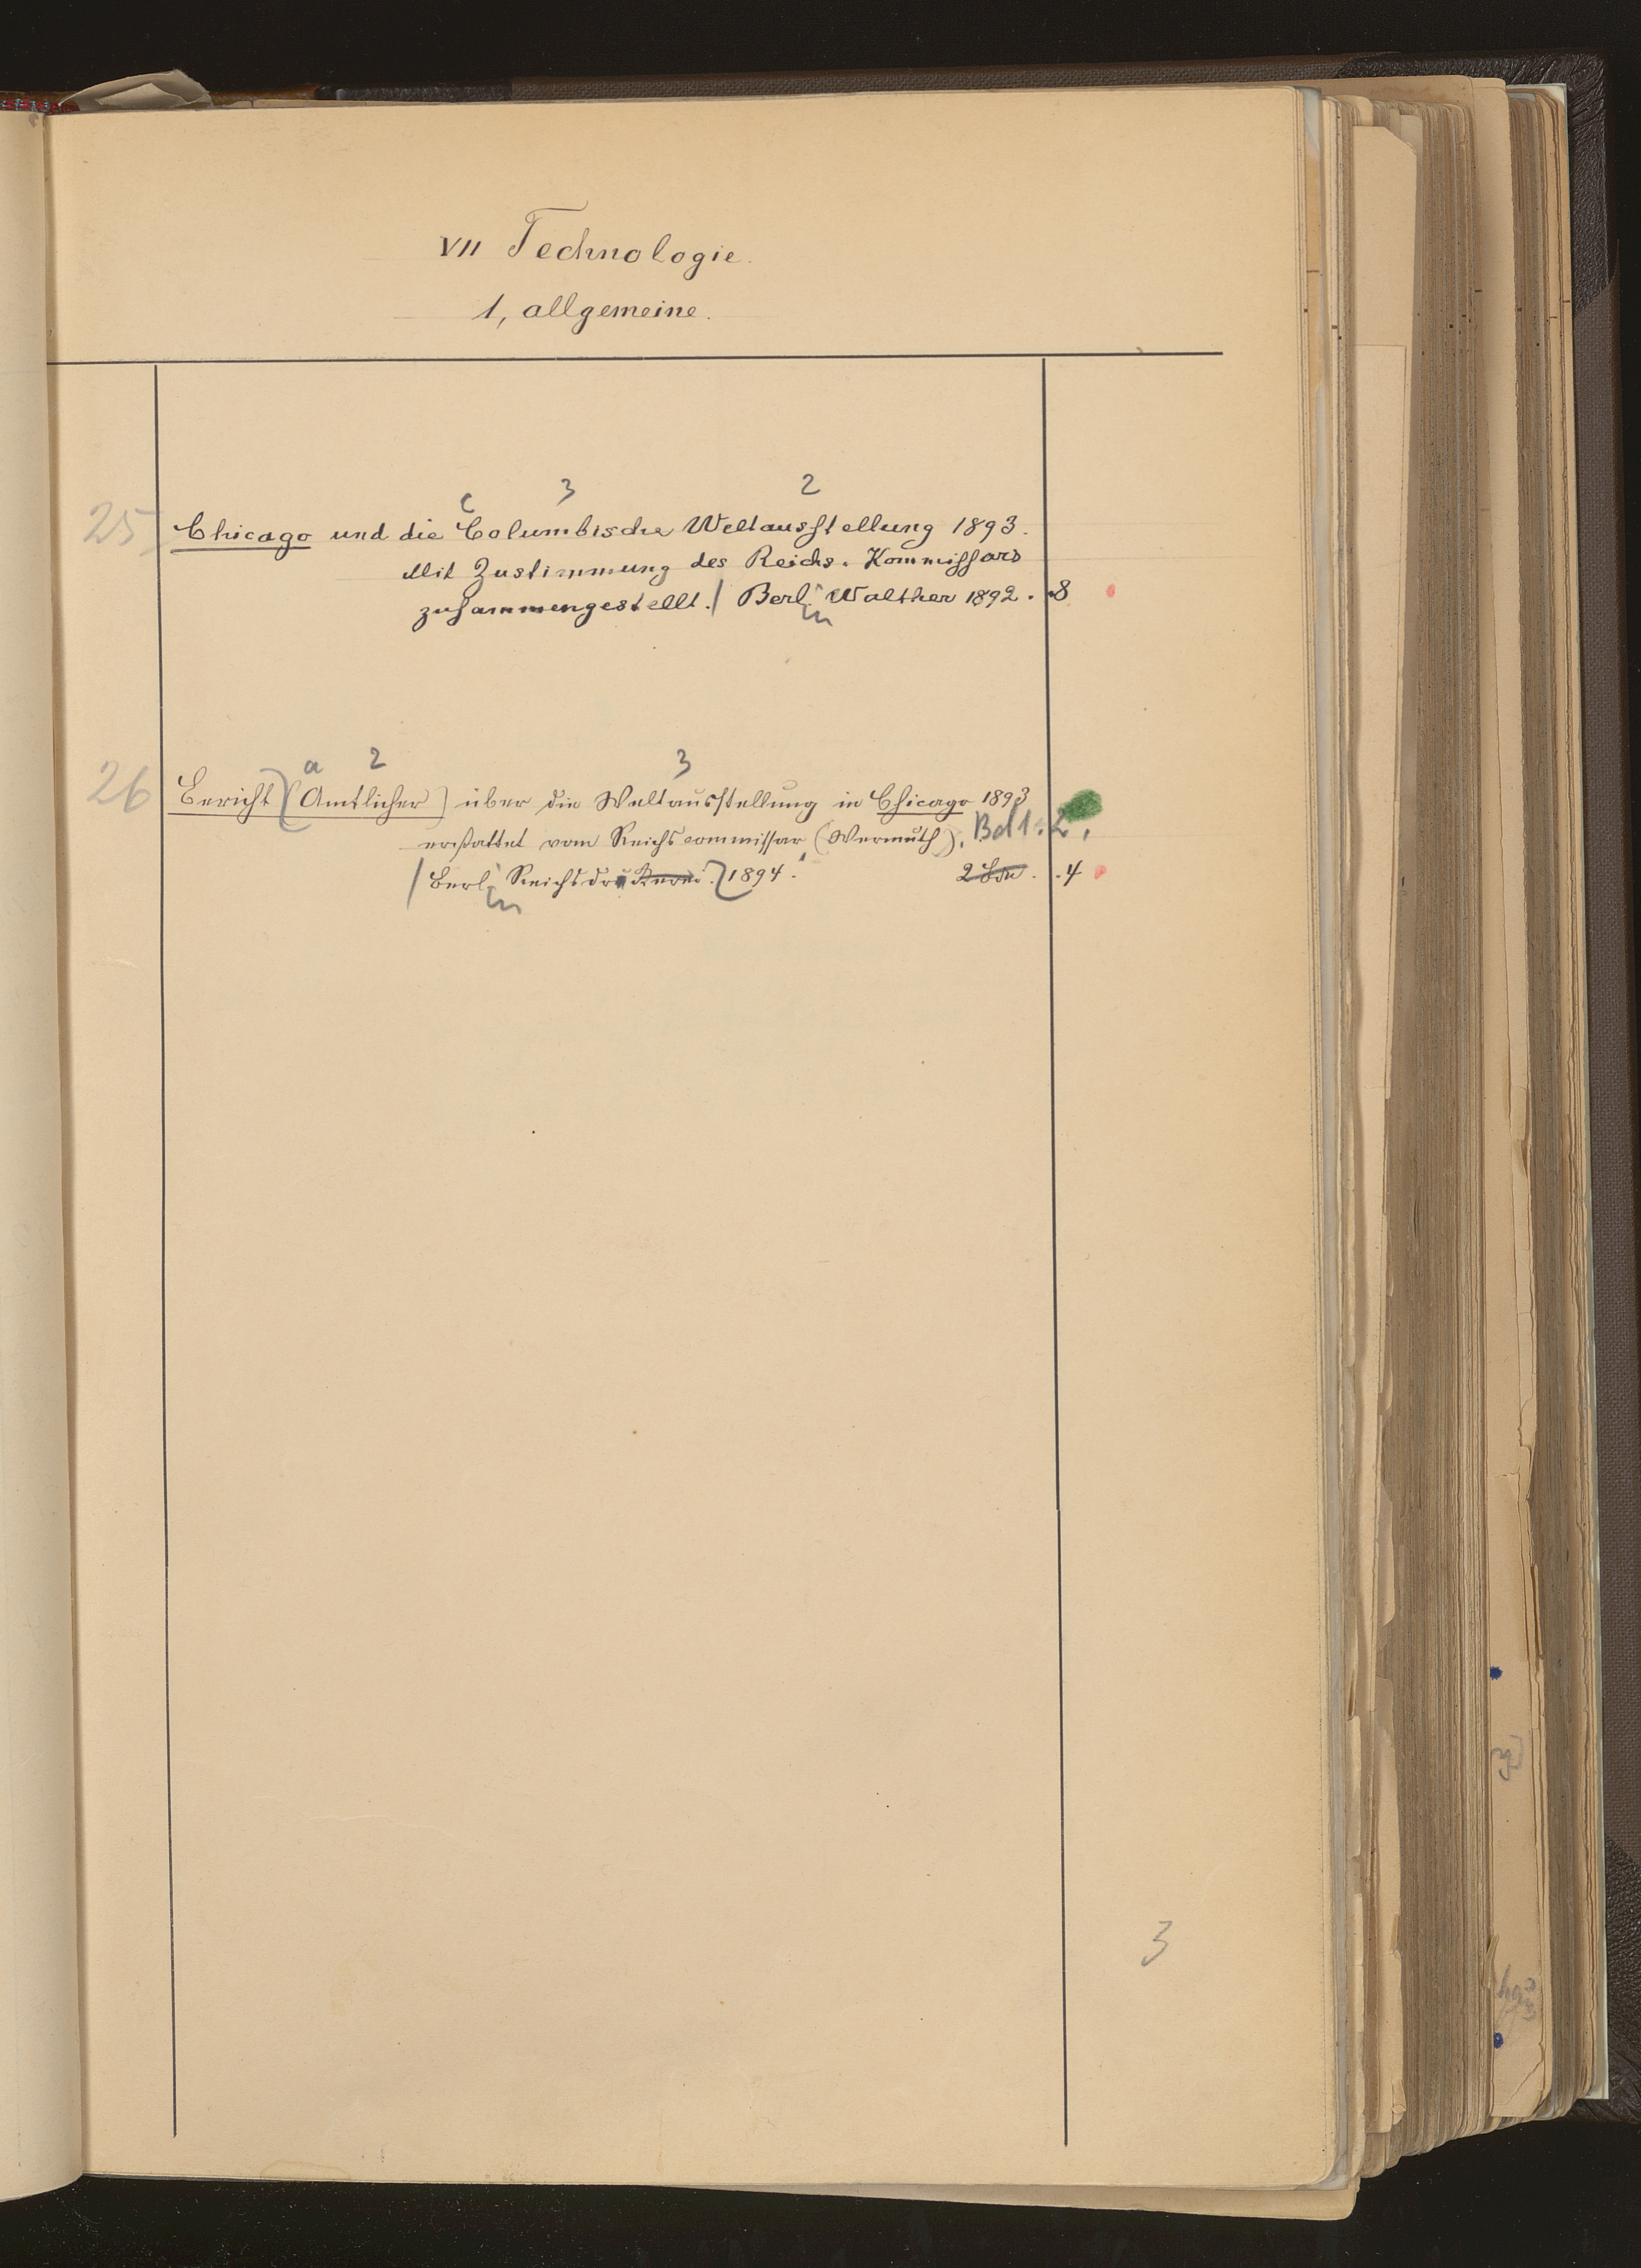 VII Technologie.
1, allgemeine.
c 3 2
25 Chicago und die Columbische Weltausstellung 1893.
Mit Zustimmung des Reichs-Kommissars
zusammengestellt. / Berl.in Walther 1892. 8
a 2 3
26 Bericht (Amtlicher) über die Weltausstellung in Chicago 1893
erstattet vom Reichscommissar (Wermuth). Bd 1. 2.
/ Berl.in Reichsdru 1894. 2 Bde. 4
3